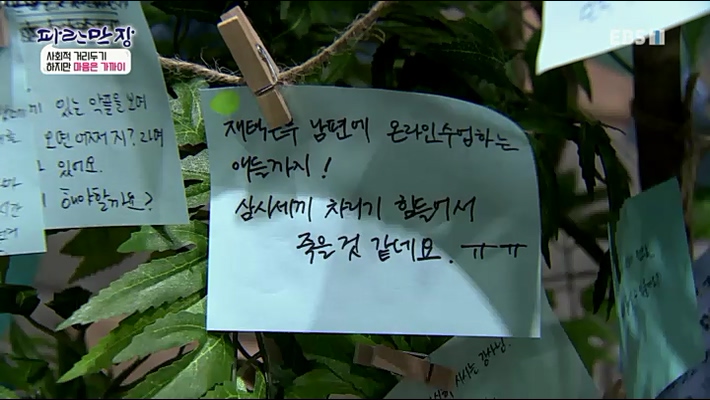 파란만장
사회적 거리두기
하지만 마음은 가까이
EBS1
있는 악플을 보며
보면 어쩌지? 라며
있어요.
해야할까요?
재택근무 남편에 온라인수업하는
애들까지!
삼시세끼 차리기 힘들어서
죽을 것 같네요. ㅠㅠ